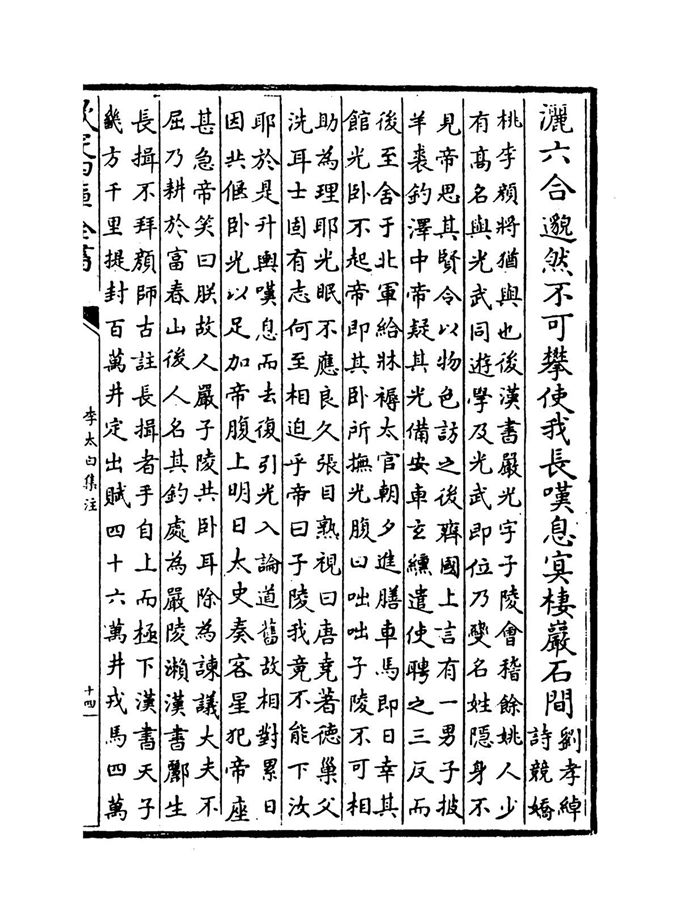 灑六合邈然不可攀使我長嘆息㝠棲巖石間劉孝綽
詩競嬌
桃李顏將猶與也後漢書嚴光字子陵會稽餘姚人少
有髙名與光武同遊學及光武即位乃變名姓隠身不
見帝思其賢令以物色訪之後齊國上言有一男子披
羊裘釣澤中帝疑其光備安車玄纁遣使聘之三反而
後至舍于北軍給牀褥太官朝夕進膳車馬即日幸其
館光卧不起帝即其卧所撫光腹曰咄咄子陵不可相
助為理耶光眠不應良久張目熟視曰唐堯著徳巢父
洗耳士固有志何至相迫乎帝曰子陵我竟不能下汝
耶於是升輿嘆息而去復引光入論道舊故相對累日
因共偃卧光以足加帝腹上明日太史奏客星犯帝座
甚急帝笑曰朕故人嚴子陵共卧耳除為諫議大夫不
屈乃耕於富春山後人名其釣處為嚴陵瀨漢書酈生
長揖不拜顔師古註長揖者手自上而極下漢書天子
畿方千里提封百萬井定出賦四十六萬井戎馬四萬
欽定四庫全書
李太白集注
十四